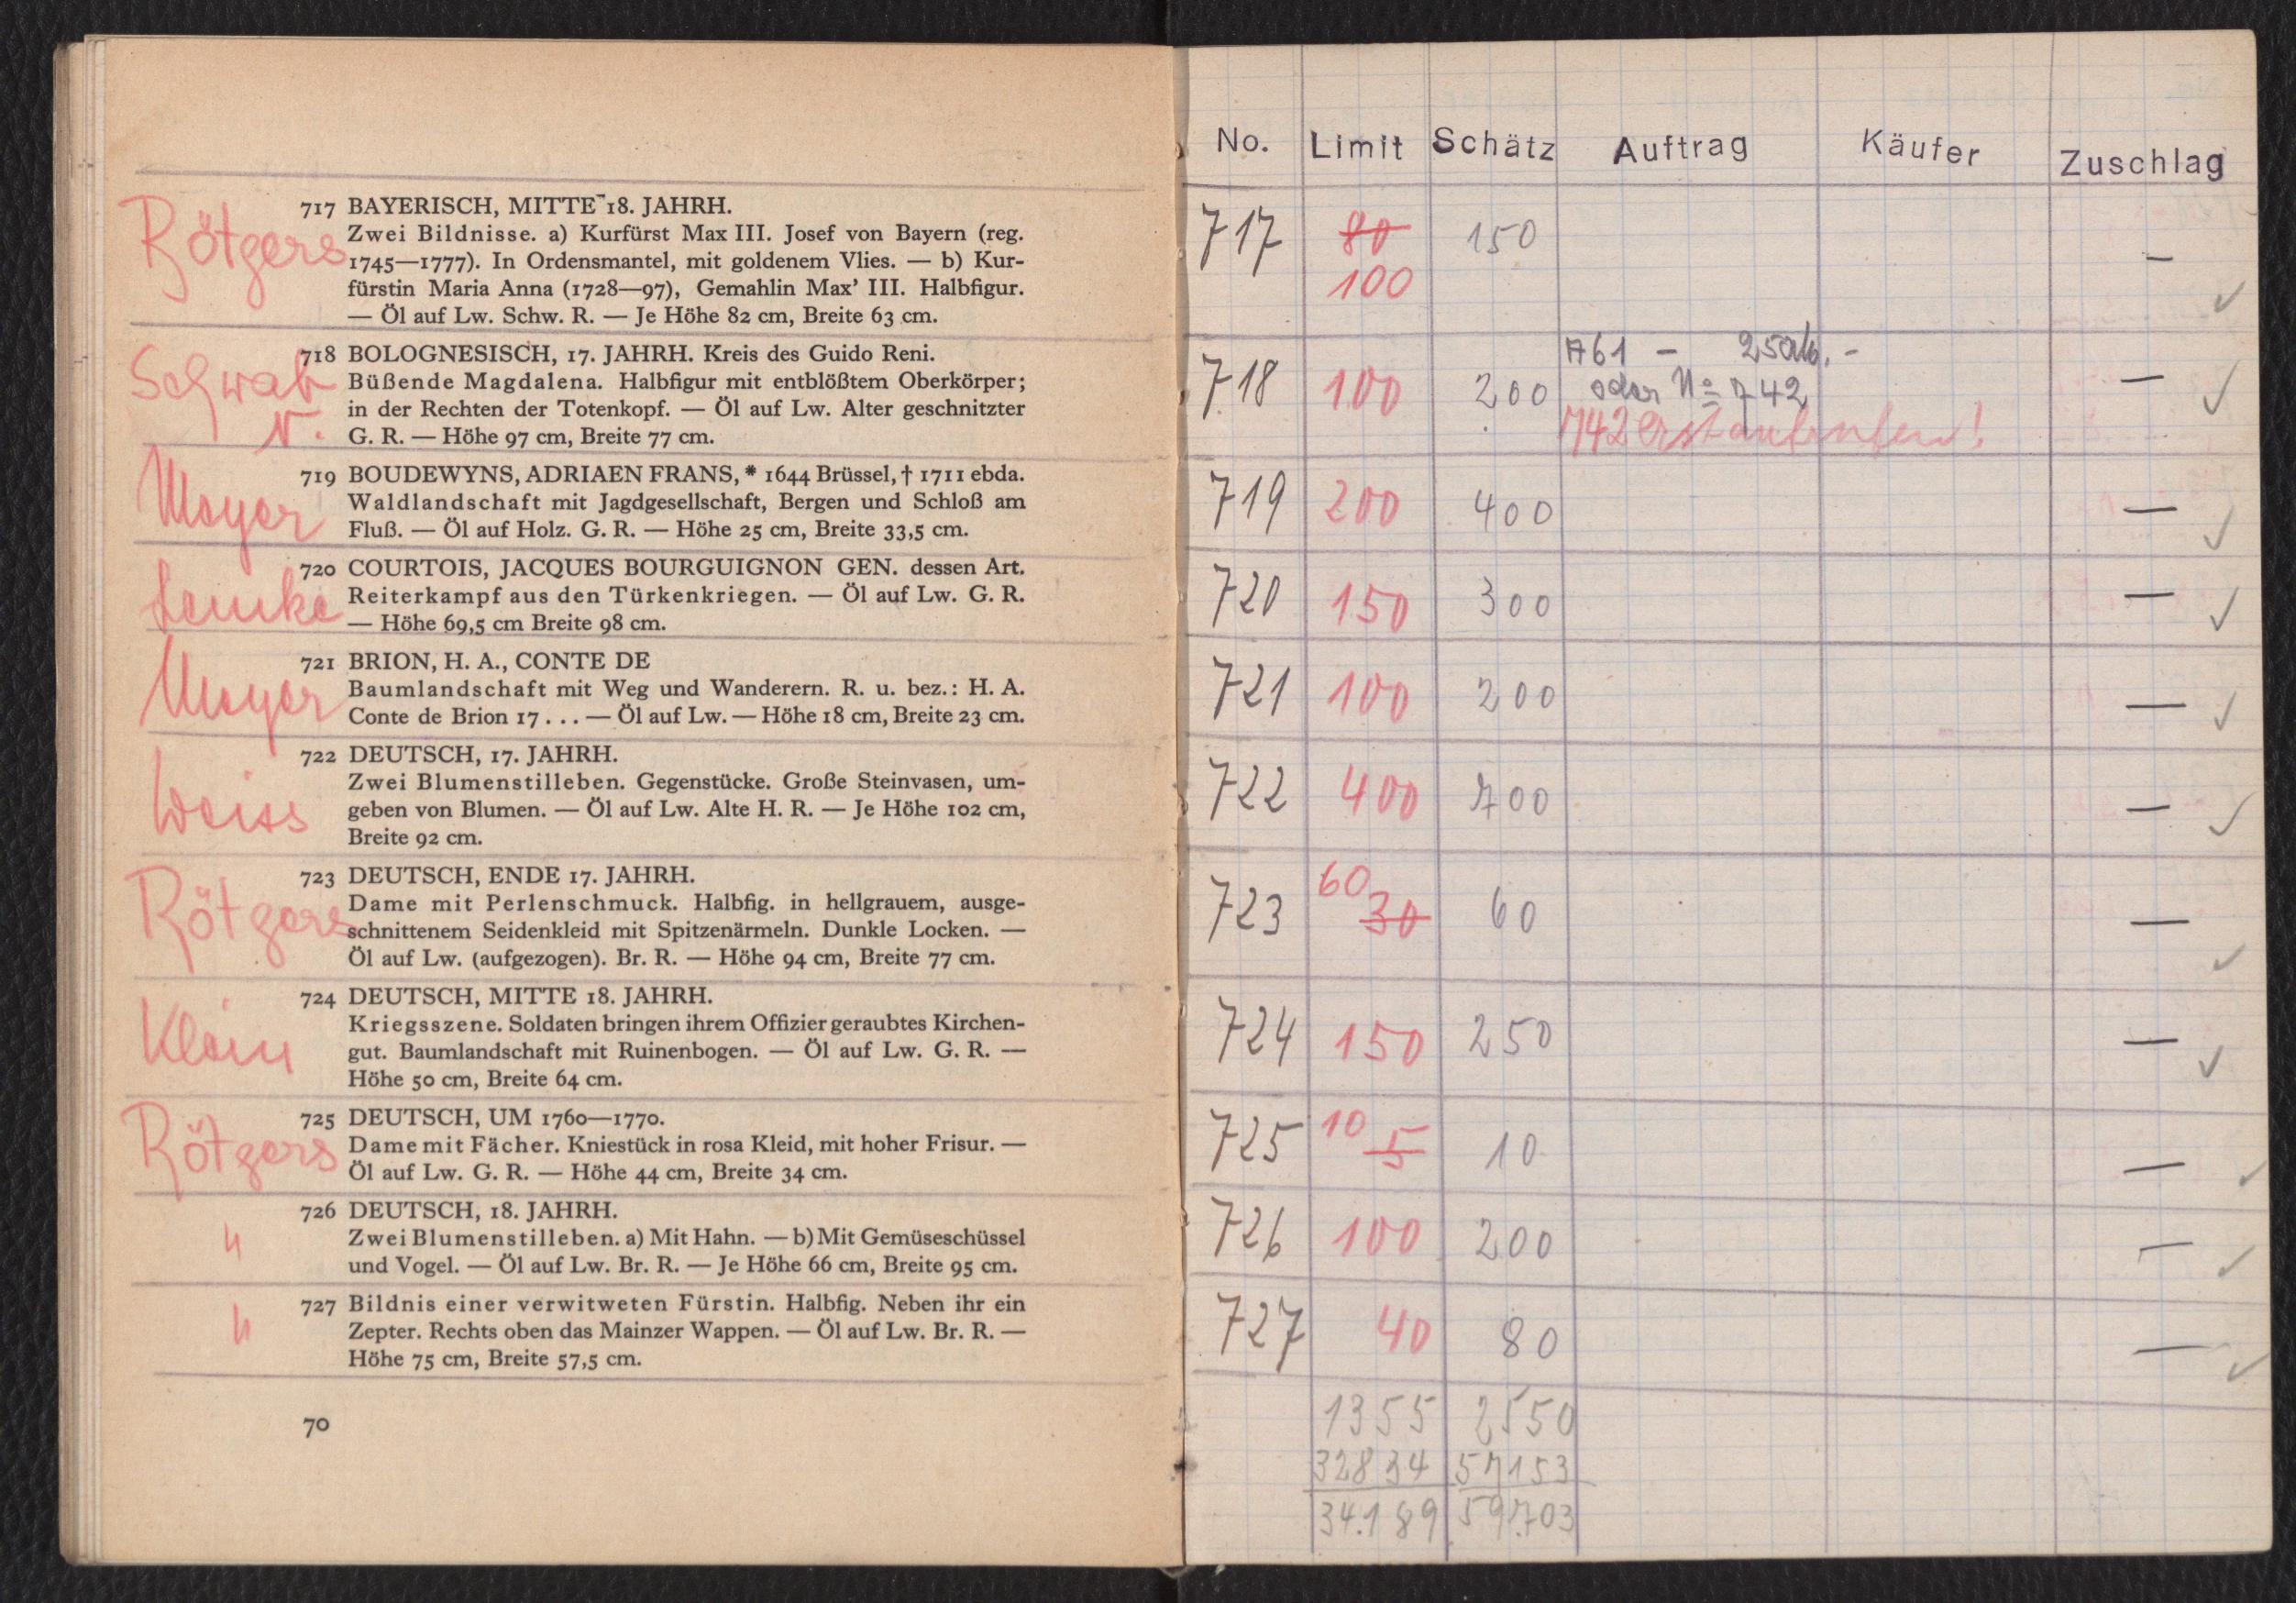 Rötgers
717 BAYERISCH, MITTE 18. JAHRH.
Zwei Bildnisse. a) Kurfürst Max III. Josef von Bayern (reg.
1745—1777). In Ordensmantel, mit goldenem Vlies. — b) Kur-
fürstin Maria Anna (1728—97), Gemahlin Max' III. Halbfigur.
— Öl auf Lw. Schw. R. — Je Höhe 82 cm, Breite 63 cm.
Schwab
N.
718 BOLOGNESISCH, 17. JAHRH. Kreis des Guido Reni.
Büßende Magdalena. Halbfigur mit entblößtem Oberkörper;
in der Rechten der Totenkopf. — Öl auf Lw. Alter geschnitzter
G. R. — Höhe 97 cm, Breite 77 cm.
Meyer
719 BOUDEWYNS, ADRIAEN FRANS, * 1644 Brüssel, † 1711 ebda.
Waldlandschaft mit Jagdgesellschaft, Bergen und Schloß am
Fluß. — Öl auf Holz. G. R. — Höhe 25 cm, Breite 33,5 cm.
Lemke
720 COURTOIS, JACQUES BOURGUIGNON GEN. dessen Art.
Reiterkampf aus den Türkenkriegen. — Öl auf Lw. G. R.
— Höhe 69,5 cm Breite 98 cm.
Meyer
721 BRION, H. A., CONTE DE
Baumlandschaft mit Weg und Wanderern. R. u. bez.: H. A.
Conte de Brion 17 . . . — Öl auf Lw. — Höhe 18 cm, Breite 23 cm.
Weiss
722 DEUTSCH, 17. JAHRH.
Zwei Blumenstilleben. Gegenstücke. Große Steinvasen, um-
geben von Blumen. — Öl auf Lw. Alte H. R. — Je Höhe 102 cm,
Breite 92 cm.
Rötgers
723 DEUTSCH, ENDE 17. JAHRH.
Dame mit Perlenschmuck. Halbfig. in hellgrauem, ausge-
schnittenem Seidenkleid mit Spitzenärmeln. Dunkle Locken. —
Öl auf Lw. (aufgezogen). Br. R. — Höhe 94 cm, Breite 77 cm.
Klein
724 DEUTSCH, MITTE 18. JAHRH.
Kriegsszene. Soldaten bringen ihrem Offizier geraubtes Kirchen-
gut. Baumlandschaft mit Ruinenbogen. — Öl auf Lw. G. R. —
Höhe 50 cm, Breite 64 cm.
Rötgers
725 DEUTSCH, UM 1760—1770.
Dame mit Fächer. Kniestück in rosa Kleid, mit hoher Frisur. —
Öl auf Lw. G. R. — Höhe 44 cm, Breite 34 cm.
726 DEUTSCH, 18. JAHRH.
Zwei Blumenstilleben. a) Mit Hahn. — b) Mit Gemüseschüssel
und Vogel. — Öl auf Lw. Br. R. — Je Höhe 66 cm, Breite 95 cm.
727 Bildnis einer verwitweten Fürstin. Halbfig. Neben ihr ein
Zepter. Rechts oben das Mainzer Wappen. — Öl auf Lw. Br. R. —
Höhe 75 cm, Breite 57,5 cm.
70
No. Limit Schätz Auftrag Käufer Zuschlag
717 80 150 —
100 ✓
761 — 250
718 100 200 oder No 742 — ✓
742 erst
719 200 400 — ✓
720 150 300 — ✓
721 100 200 — ✓
722 400 700 — ✓
723 60 30 60 — ✓
724 150 250 — ✓
725 10 5 10 — ✓
726 100 200 — ✓
727 40 80 — ✓
1355 2550
32834 57153
34.189 59.703